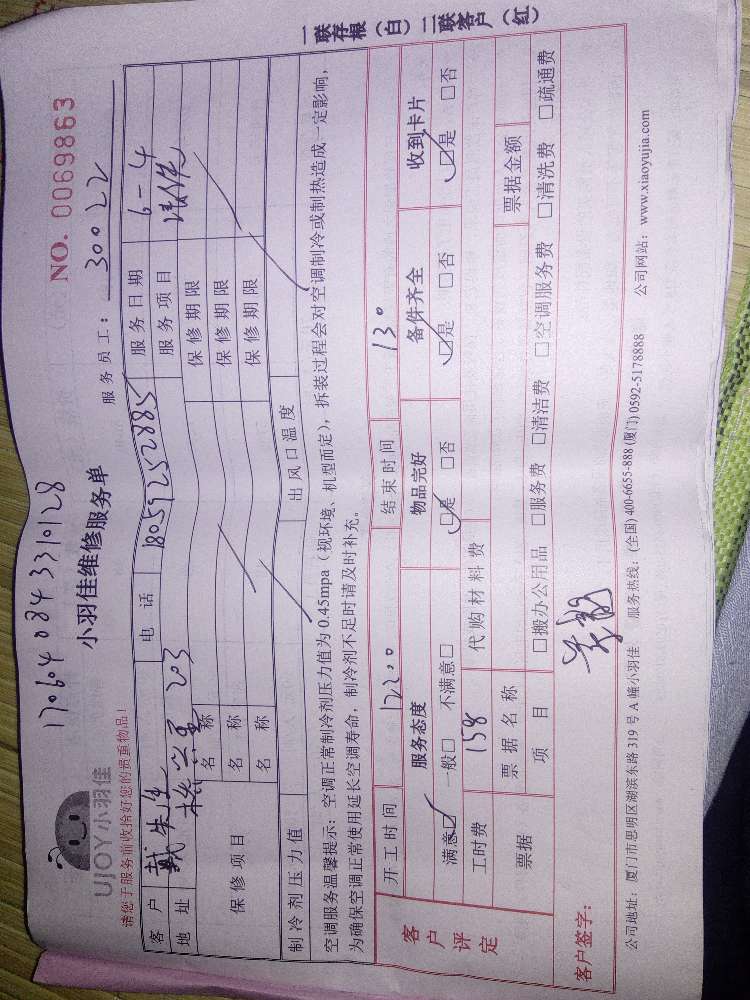 1706040843310128
UJOY小羽佳
小羽佳维修服务单
NO. 0069863
请您于服务前收拾好您的贵重物品！
服务员工： 30022
客户 戴先生 电话 18059252885 服务日期 6-4
地址 203 服务项目
保修项目 名称 保修期限
名称 保修期限
名称 保修期限
制冷剂压力值 出风口温度
空调服务温馨提示：空调正常制冷剂压力值为 0.45mpa（视环境、机型而定），拆装过程会对空调制冷或制热造成一定影响，
为确保空调正常使用延长空调寿命，制冷剂不足时请及时补充。
开工时间 12:00 结束时间 13
客户评定 服务态度 物品完好 备件齐全 收到卡片
满意☑ 一般□ 不满意□ ☑是 □否 ☑是 □否 ☑是 □否
工时费 158 代购材料费
票据 票据名称 票据金额
项目 □搬办公用品 □服务费 □清洁费 □空调服务费 □清洗费 □疏通费
客户签字：
公司地址：厦门市思明区湖滨东路 319 号 A 幢小羽佳 服务热线：(全国) 400-6655-888 (厦门) 0592-5178888 公司网站：www.xiaoyujia.com
一联存根（白）二联客户（红）